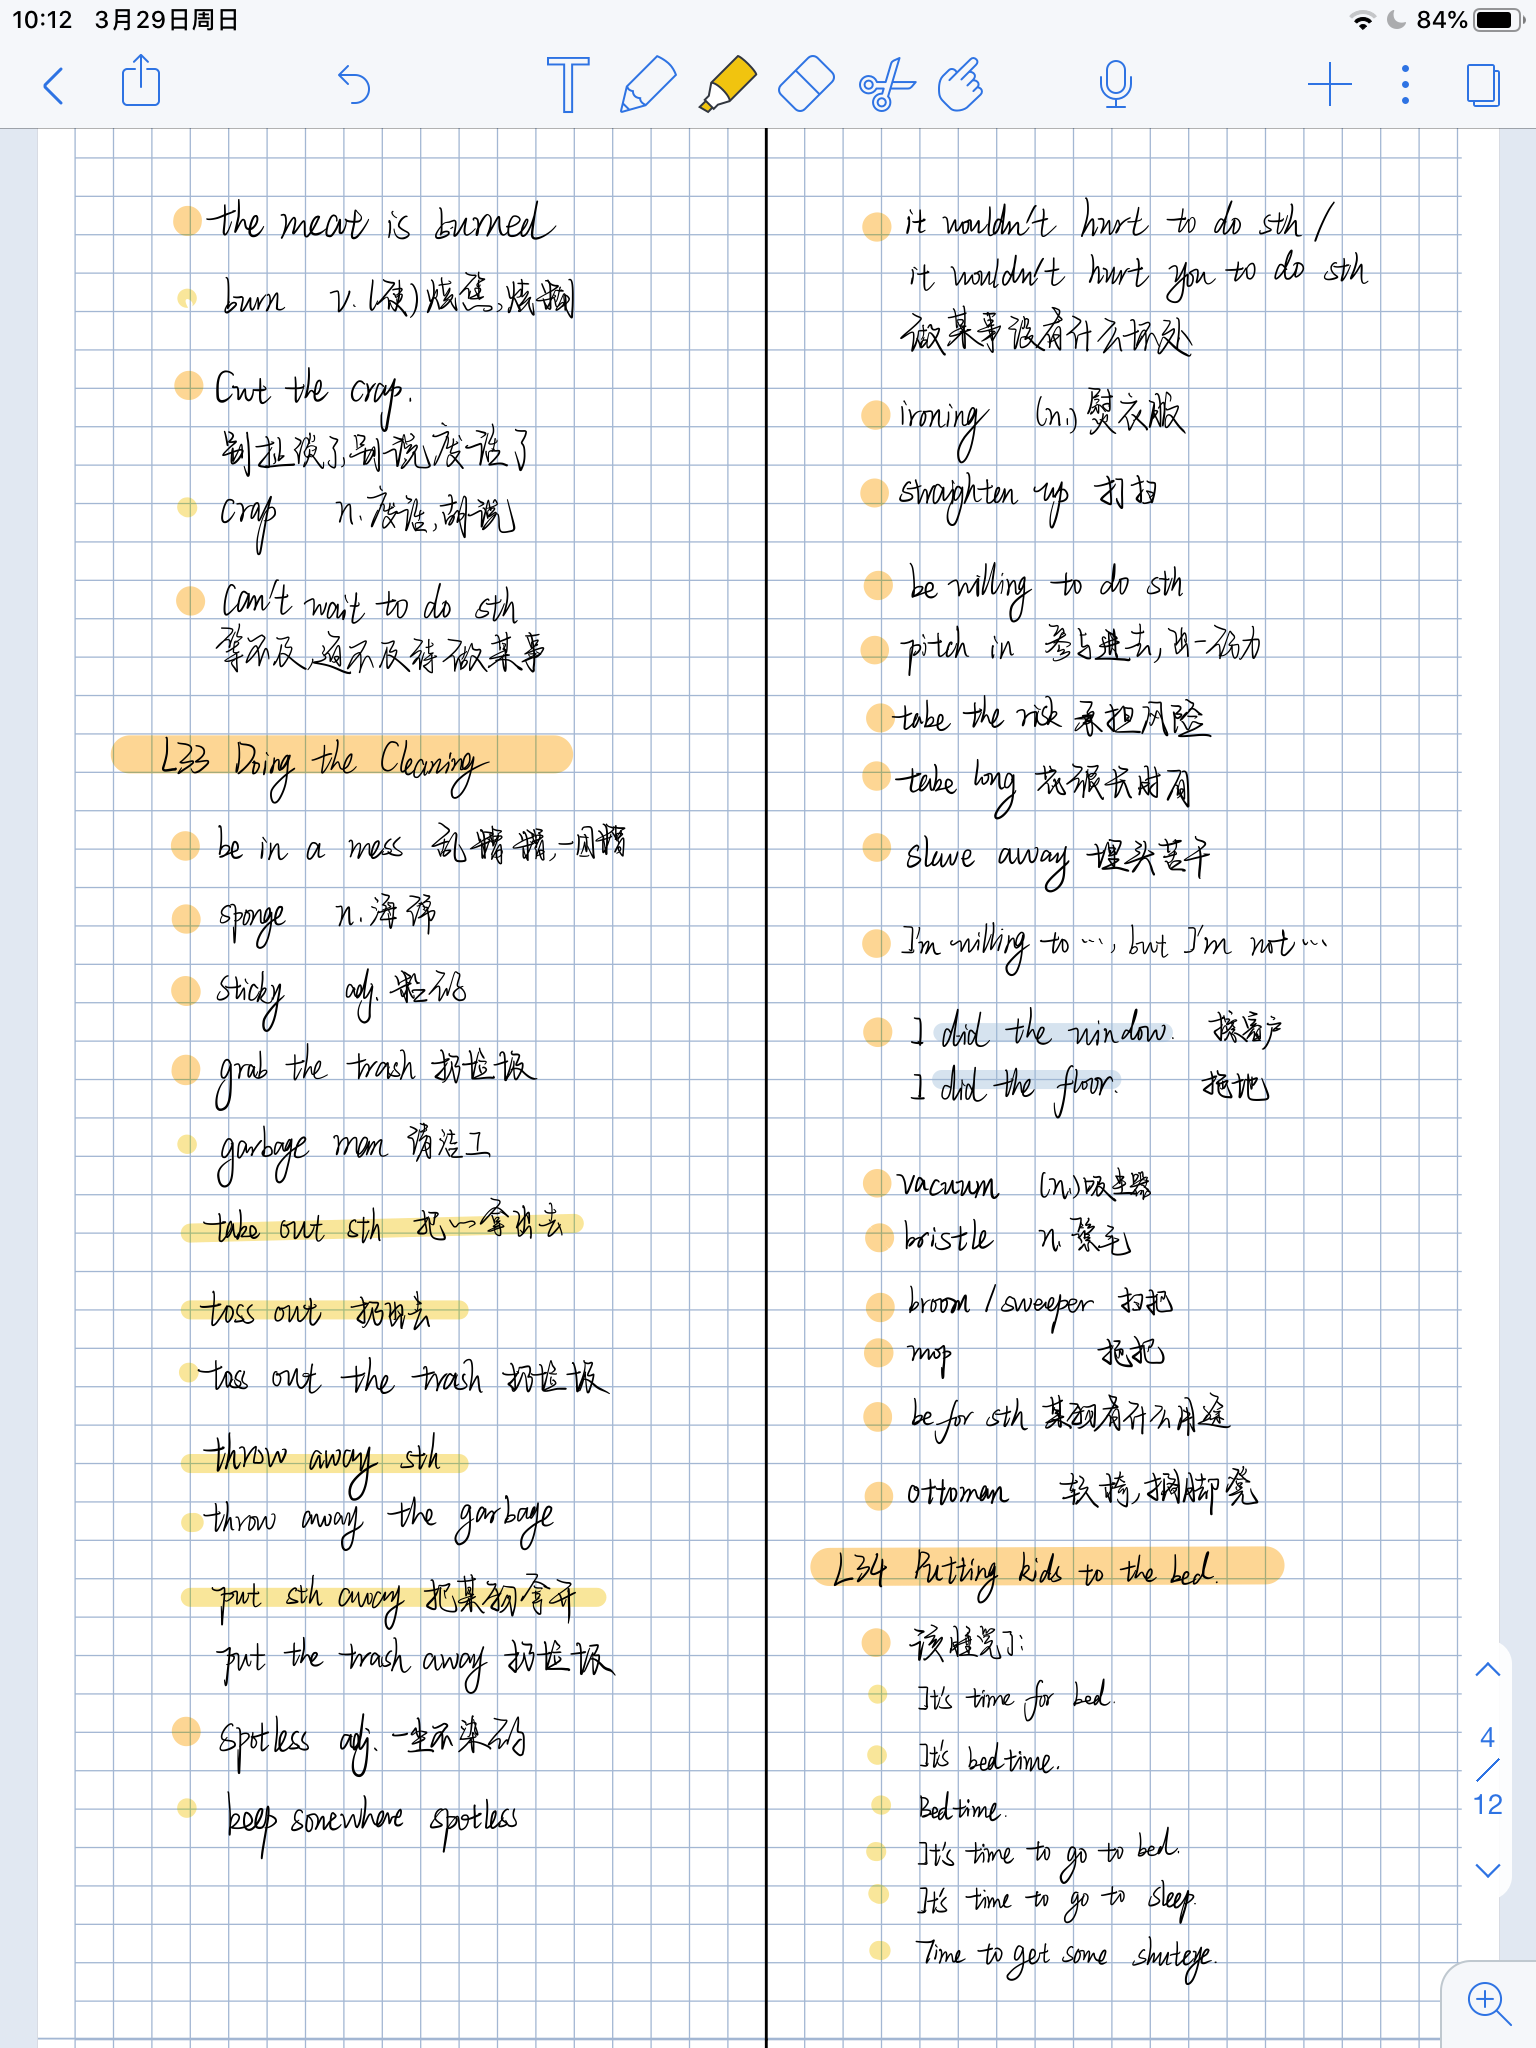 10:12 3月29日周日
84%
the meat is burned
burn v. (使)烧焦,烧糊
Cut the crap.
别扯淡了,别说废话了
crap n. 废话,胡说
Can't wait to do sth
等不及,迫不及待做某事
L33 Doing the Cleaning
be in a mess 乱糟糟,一团糟
sponge n. 海绵
sticky adj. 黏的
grab the trash 扔垃圾
garbage man 清洁工
take out sth 把…拿出去
toss out 扔出去
toss out the trash 扔垃圾
throw away sth
throw away the garbage
put sth away 把某物拿开
put the trash away 扔垃圾
spotless adj. 一尘不染的
keep somewhere spotless
it wouldn't hurt to do sth /
it wouldn't hurt you to do sth
做某事没有什么坏处
ironing (n.) 熨衣服
straighten up 打扫
be willing to do sth
pitch in 参与进去,出一份力
take the risk 承担风险
take long 花很长时间
slave away 埋头苦干
I'm willing to …, but I'm not …
I did the window. 擦窗户
I did the floor. 拖地
vacuum (n.) 吸尘器
bristle n. 鬃毛
broom / sweeper 扫把
mop 拖把
be for sth 某物有什么用途
ottoman 软椅,搁脚凳
L34 Putting kids to the bed.
该睡觉了:
It's time for bed.
It's bedtime.
Bedtime.
It's time to go to bed.
It's time to go to sleep.
Time to get some shuteye.
4
/
12